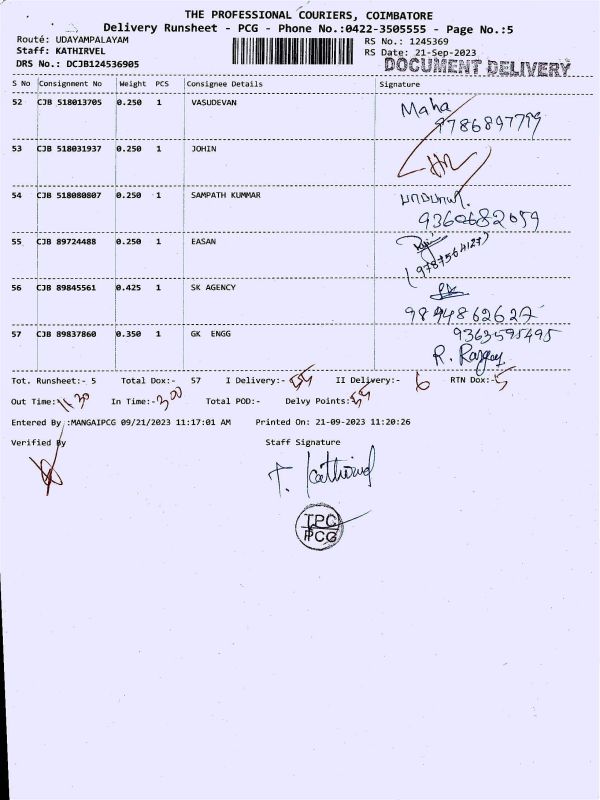 THE PROFESSIONAL COURIERS, COIMBATORE
Delivery Runsheet - PCG - Phone No.:0422-3505555 - Page No.:5
Routé: UDAYAMPALAYAM
RS No.: 1245369
Staff: KATHIRVEL
RS Date: 21-Sep-2023
DRS No.: DCJB124536905
DOCUMENT DELIVERY
S No Consignment No Weight PCS Consignee Details Signature
52 CJB 518013705 0.250 1 VASUDEVAN Maha
9786897779
53 CJB 518031937 0.250 1 JOHIN
54 CJB 518080807 0.250 1 SAMPATH KUMMAR
9360682059
55 CJB 89724488 0.250 1 EASAN
(9787564127)
56 CJB 89845561 0.425 1 SK AGENCY
9894862627
57 CJB 89837860 0.350 1 GK ENGG 9363595495
R.
Tot. Runsheet:- 5 Total Dox:- 57 I Delivery:- II Delivery:- 6 RTN Dox:- 5
Out Time:- 11.30 In Time:- 3.00 Total POD:- Delvy Points:-
Entered By :MANGAIPCG 09/21/2023 11:17:01 AM Printed On: 21-09-2023 11:20:26
Verified By Staff Signature
T. Kathirvel
TPC
PCG